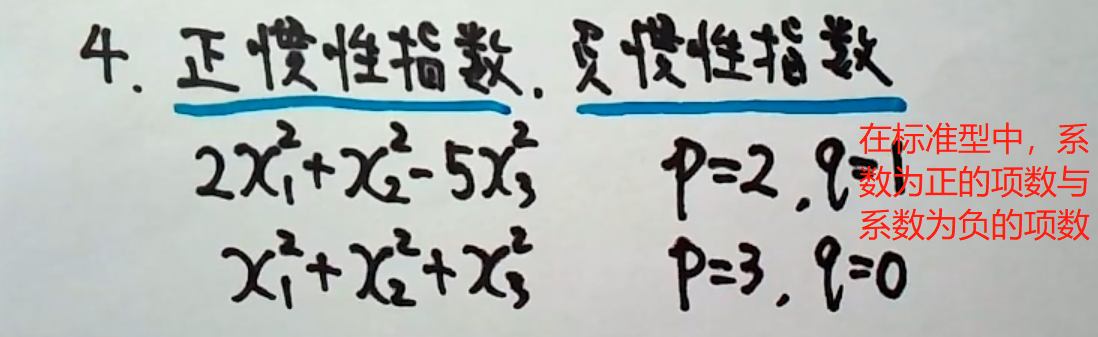 4. 正惯性指数. 负惯性指数
2x₁²+x₂²-5x₃² p=2, q=1
x₁²+x₂²+x₃² p=3, q=0
在标准型中，系
数为正的项数与
系数为负的项数